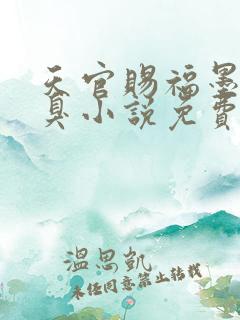 天官赐福墨
真小说免费
温思凯
未经同意禁止转载